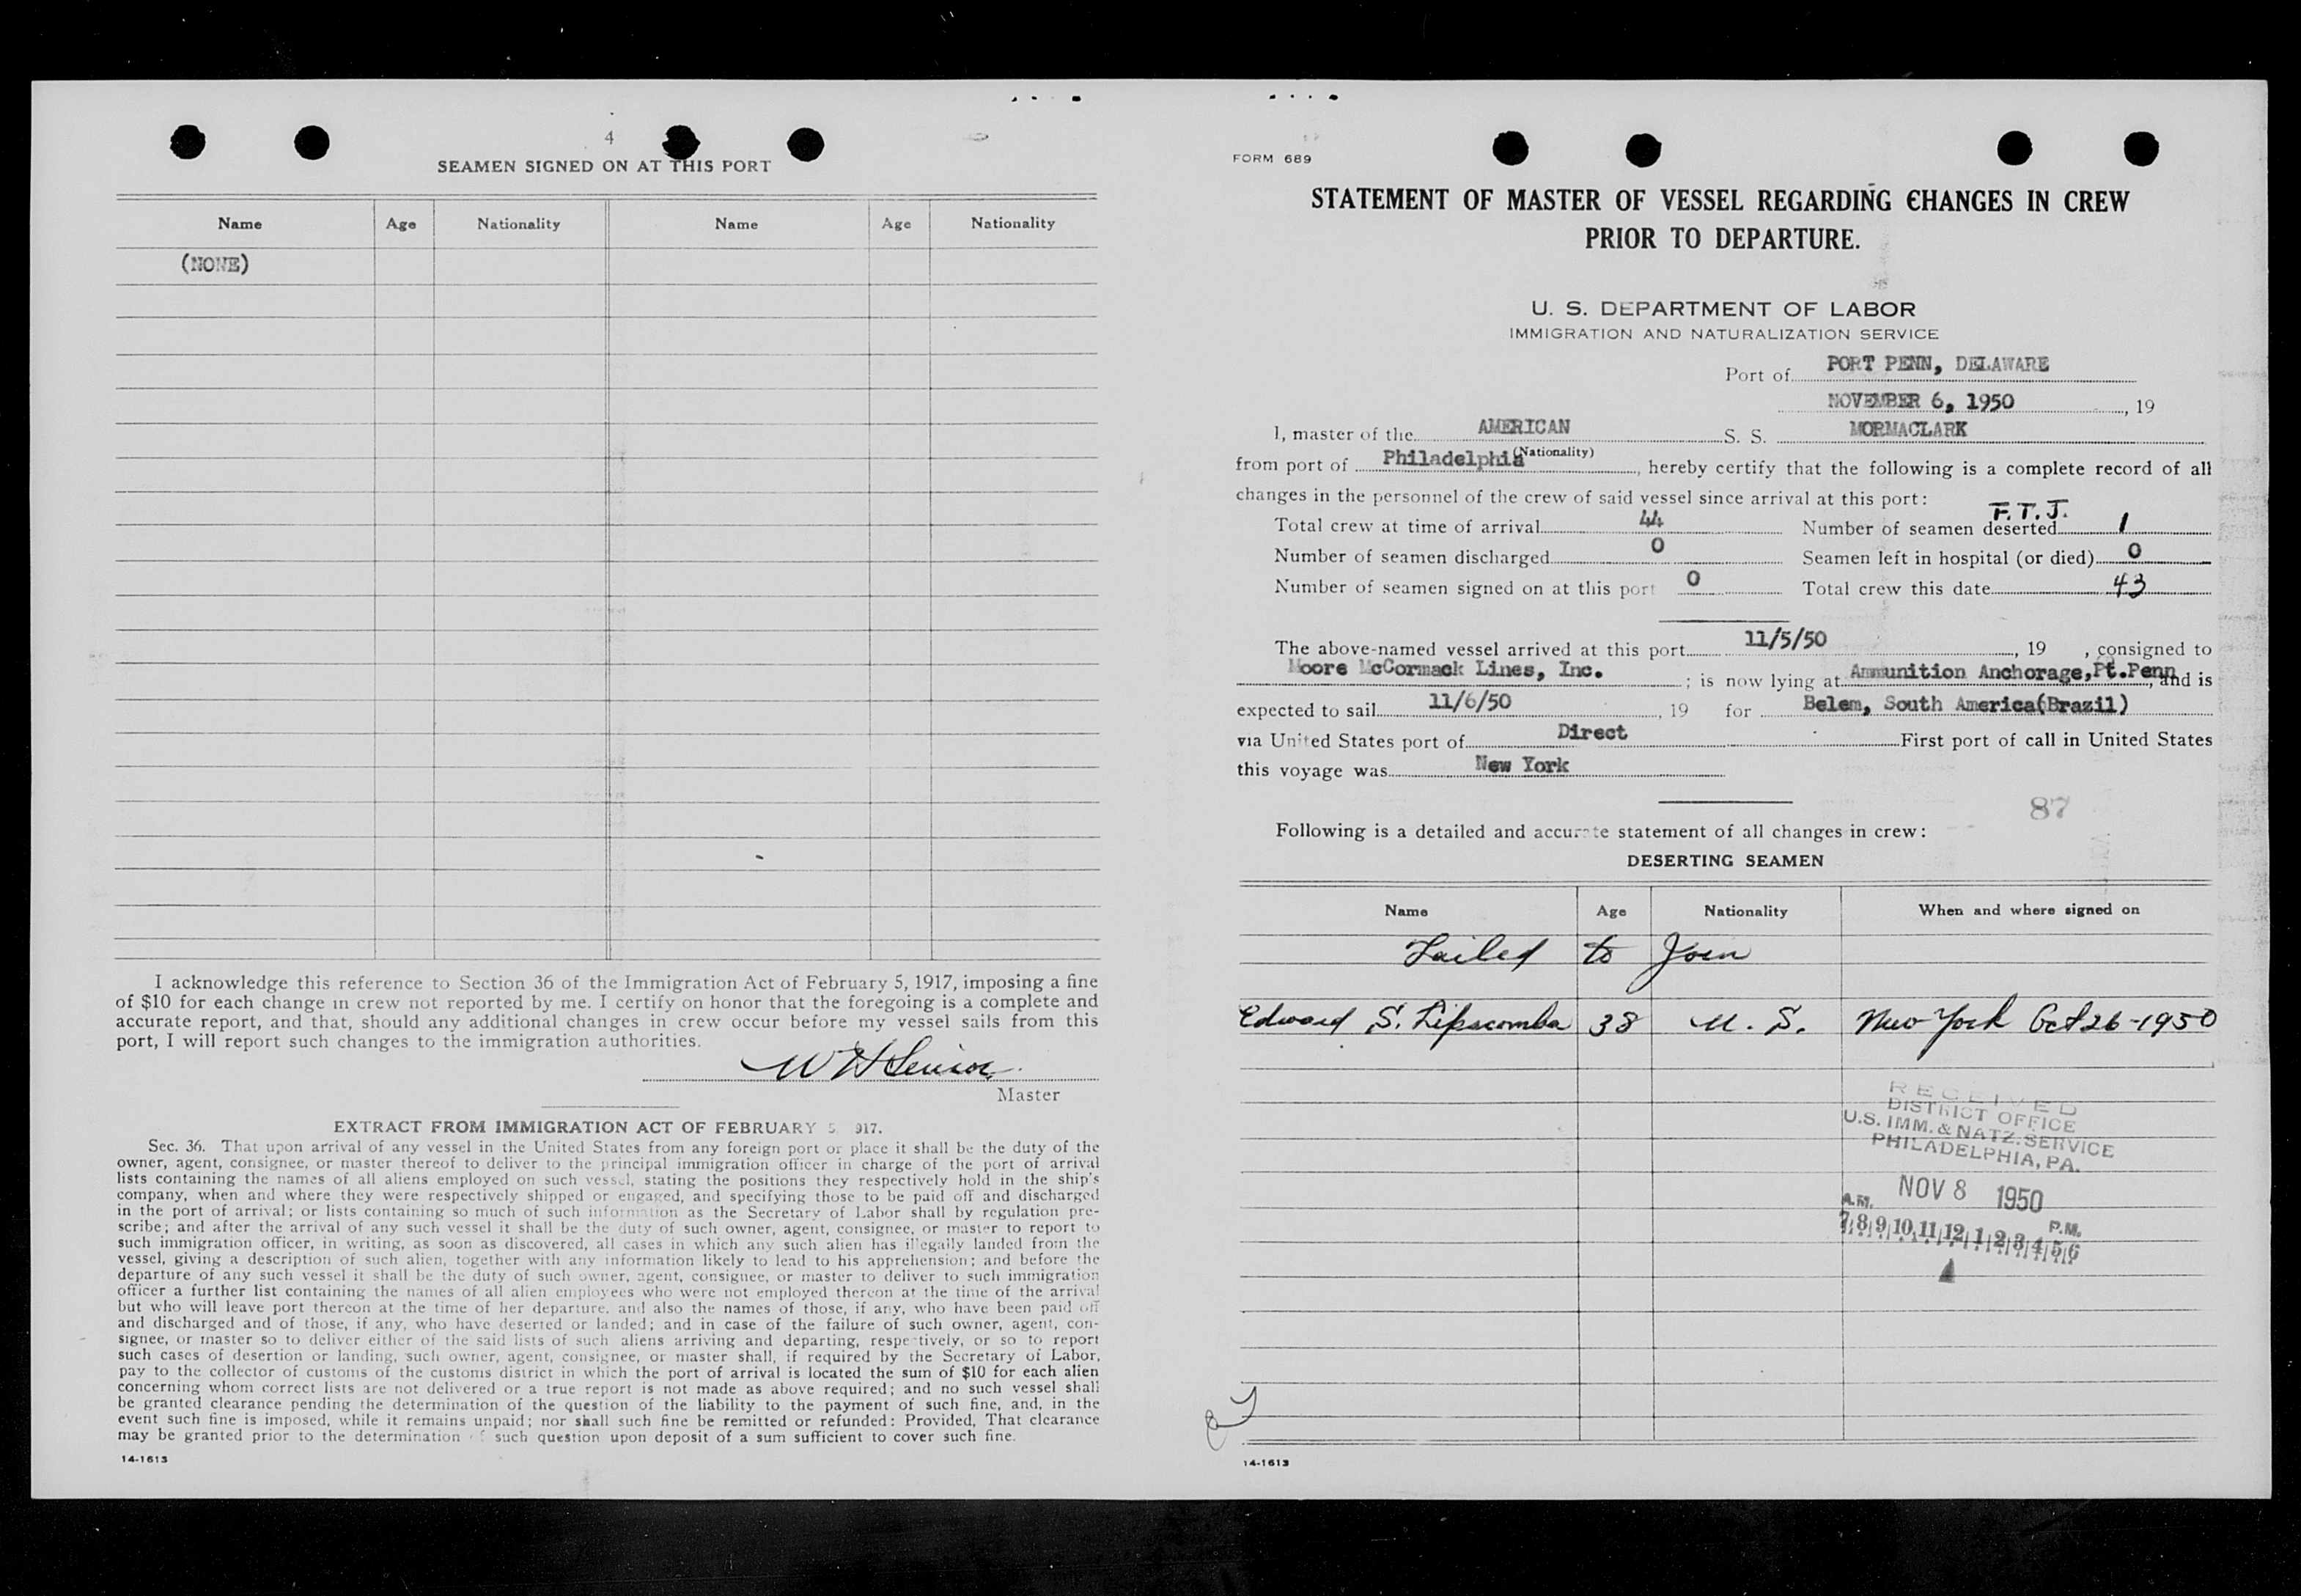 4
SEAMEN SIGNED ON AT THIS PORT
Name Age Nationality Name Age Nationality
(NONE)
I acknowledge this reference to Section 36 of the Immigration Act of February 5, 1917, imposing a fine
of $10 for each change in crew not reported by me. I certify on honor that the foregoing is a complete and
accurate report, and that, should any additional changes in crew occur before my vessel sails from this
port, I will report such changes to the immigration authorities.
Master
EXTRACT FROM IMMIGRATION ACT OF FEBRUARY 5 917.
Sec. 36. That upon arrival of any vessel in the United States from any foreign port or place it shall be the duty of the
owner, agent, consignee, or master thereof to deliver to the principal immigration officer in charge of the port of arrival
lists containing the names of all aliens employed on such vessel, stating the positions they respectively hold in the ship's
company, when and where they were respectively shipped or engaged, and specifying those to be paid off and discharged
in the port of arrival; or lists containing so much of such information as the Secretary of Labor shall by regulation pre-
scribe; and after the arrival of any such vessel it shall be the duty of such owner, agent, consignee, or master to report to
such immigration officer, in writing, as soon as discovered, all cases in which any such alien has illegally landed from the
vessel, giving a description of such alien, together with any information likely to lead to his apprehension; and before the
departure of any such vessel it shall be the duty of such owner, agent, consignee, or master to deliver to such immigration
officer a further list containing the names of all alien employees who were not employed thereon at the time of the arrival
but who will leave port thereon at the time of her departure, and also the names of those, if any, who have been paid off
and discharged and of those, if any, who have deserted or landed; and in case of the failure of such owner, agent, con-
signee, or master so to deliver either of the said lists of such aliens arriving and departing, respectively, or so to report
such cases of desertion or landing, such owner, agent, consignee, or master shall, if required by the Secretary of Labor,
pay to the collector of customs of the customs district in which the port of arrival is located the sum of $10 for each alien
concerning whom correct lists are not delivered or a true report is not made as above required; and no such vessel shall
be granted clearance pending the determination of the question of the liability to the payment of such fine, and, in the
event such fine is imposed, while it remains unpaid; nor shall such fine be remitted or refunded: Provided, That clearance
may be granted prior to the determination of such question upon deposit of a sum sufficient to cover such fine.
14-1613
FORM 689
STATEMENT OF MASTER OF VESSEL REGARDING CHANGES IN CREW
PRIOR TO DEPARTURE.
U. S. DEPARTMENT OF LABOR
IMMIGRATION AND NATURALIZATION SERVICE
Port of PORT PENN, DELAWARE
NOVEMBER 6, 1950, 19
I, master of the AMERICAN S. S. MORMACLARK
(Nationality)
from port of Philadelphia, hereby certify that the following is a complete record of all
changes in the personnel of the crew of said vessel since arrival at this port:
F.T.J.
Total crew at time of arrival 44 Number of seamen deserted 1
Number of seamen discharged 0 Seamen left in hospital (or died) 0
Number of seamen signed on at this port 0 Total crew this date 43
The above-named vessel arrived at this port 11/5/50, 19 , consigned to
Moore McCormack Lines, Inc. ; is now lying at Ammunition Anchorage,Pt.Penn, and is
expected to sail 11/6/50, 19 for Belem, South America(Brazil)
via United States port of Direct First port of call in United States
this voyage was New York
87
Following is a detailed and accurate statement of all changes in crew:
DESERTING SEAMEN
Name Age Nationality When and where signed on
Failed to Join
Edward S. Lipscomba 38 U. S. New York Oct 26-1950
RECEIVED
DISTRICT OFFICE
U.S. IMM. & NATZ. SERVICE
PHILADELPHIA, PA.
NOV 8 1950
A.M. P.M.
7 8 9 10 11 12 1 2 3 4 5 6
14-1613